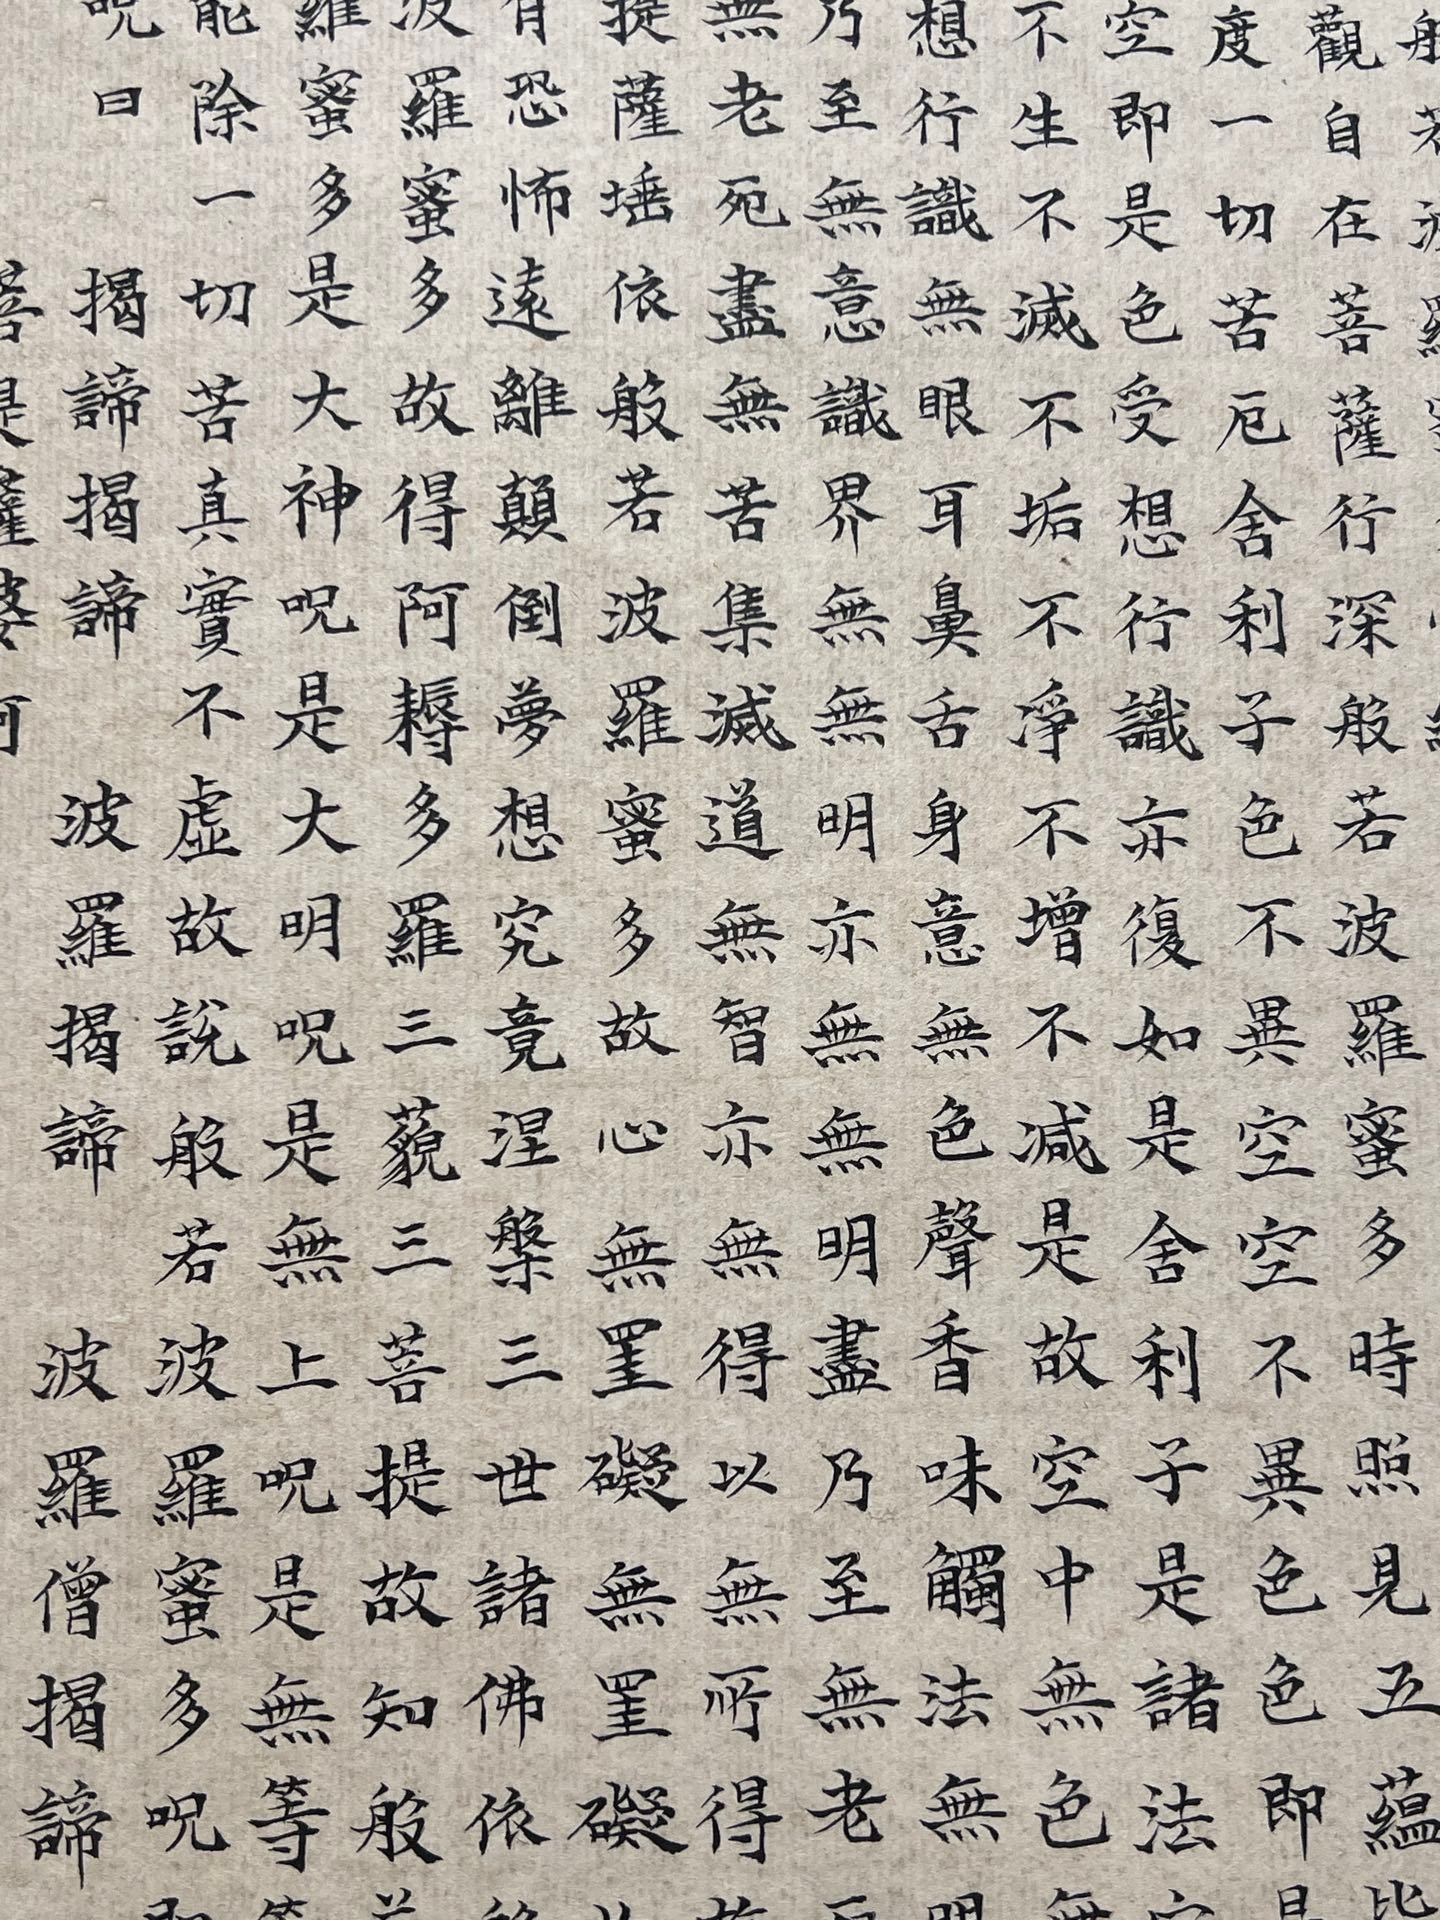 般若波羅
觀自在菩薩行深般若波羅蜜多時照見五蘊
度一切苦厄舍利子色不異空空不異色色即
空即是色受想行識亦復如是舍利子是諸法
不生不滅不垢不淨不增不減是故空中無色
想行識無眼耳鼻舌身意無色聲香味觸法無
乃至無意識界無無明亦無無明盡乃至無老
無老死盡無苦集滅道無智亦無得以無所得
提薩埵依般若波羅蜜多故心無罣礙無罣礙
有恐怖遠離顛倒夢想究竟涅槃三世諸佛依
波羅蜜多故得阿耨多羅三藐三菩提故知般
羅蜜多是大神呪是大明呪是無上呪是無等
能除一切苦真實不虛故說般若波羅蜜多呪
呪曰 揭諦揭諦 波羅揭諦 波羅僧揭諦
菩提薩婆訶